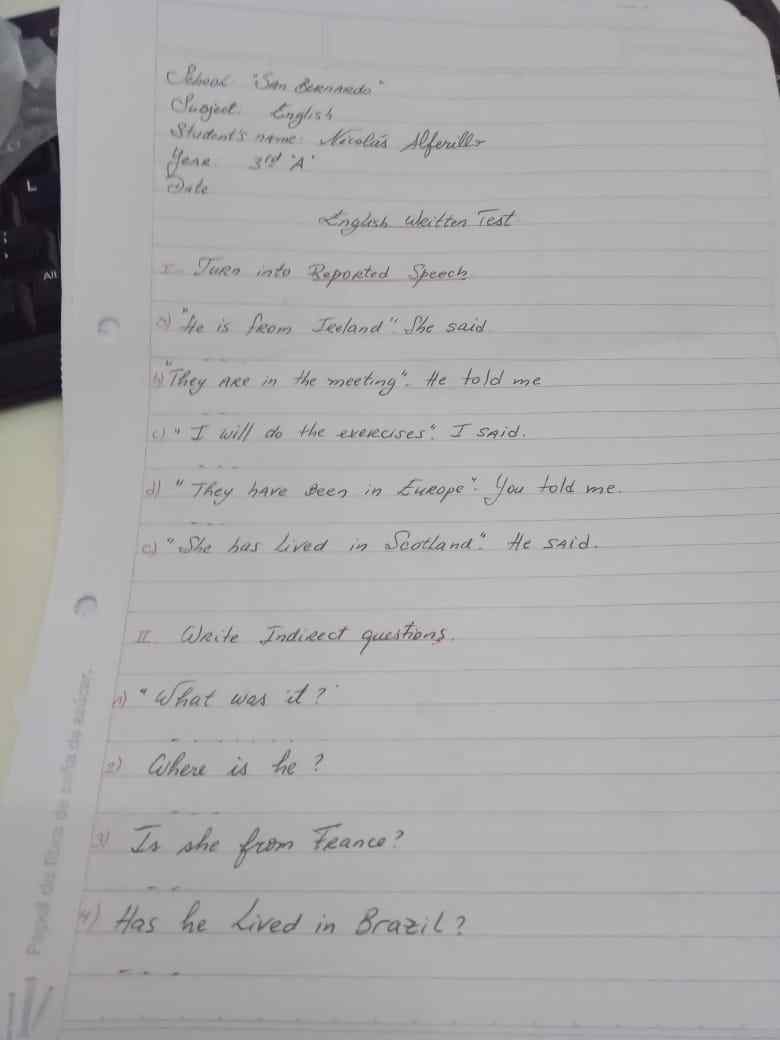 School: "San Bernardo"
Suject: English
Student's name: Nicolás Alferillo
Year: 3rd "A"
Date
English Written Test
I- Turn into Reported Speech
a) "He is from Ireland". She said
b) "They are in the meeting". He told me
c) "I will do the exercises". I said.
d) "They have been in Europe". You told me.
e) "She has lived in Scotland." He said.
II Write Indirect questions.
1) "What was it?"
2) Where is he?
3) Is she from France?
4) Has he lived in Brazil?
Papel de fibra de caña de azúcar.
L